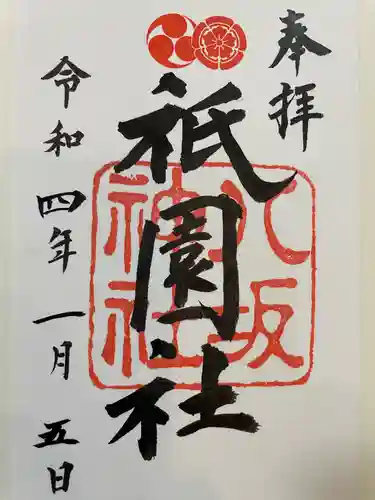 奉拝
八坂
神社
祇園社
令和四年一月五日